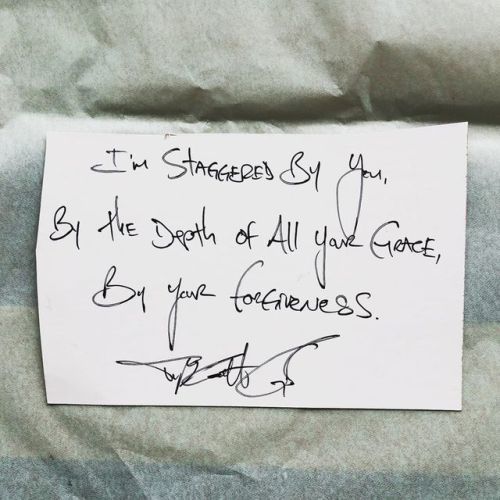 I'm STAGGERED By You,
By the Depth of All your GRACE,
By your FORGIVENESS.